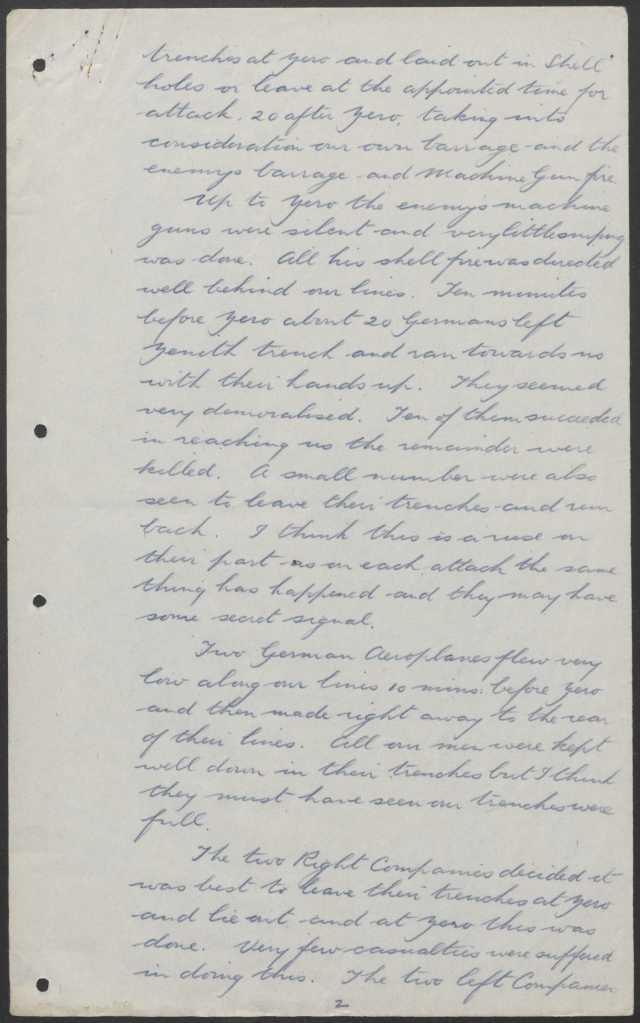 trenches at zero and laid out in Shell
holes or leave at the appointed time for
attack. 20 after Zero, taking into
consideration our own barrage and the
enemys barrage and Machine Gun fire.
Up to Zero the enemy's machine
guns were silent and very little sniping
was done. All his shell fire was directed
well behind our lines. Ten minutes
before Zero about 20 Germans left
Zenith trench and ran towards us
with their hands up. They seemed
very demoralised. Ten of them succeeded
in reaching us the remainder were
killed. A small number were also
seen to leave their trenches and run
back. I think this is a ruse on
their part as on each attack the same
thing has happened and they may have
some secret signal.
Two German Aeroplanes flew very
low along our lines 10 mins: before Zero
and then made right away to the rear
of their lines. All our men were kept
well down in their trenches but I think
they must have seen our trenches were
full.
The two Right Companies decided it
was best to leave their trenches at Zero
and lie out and at Zero this was
done. Very few casualties were suffered
in doing this. The two left Companies
2